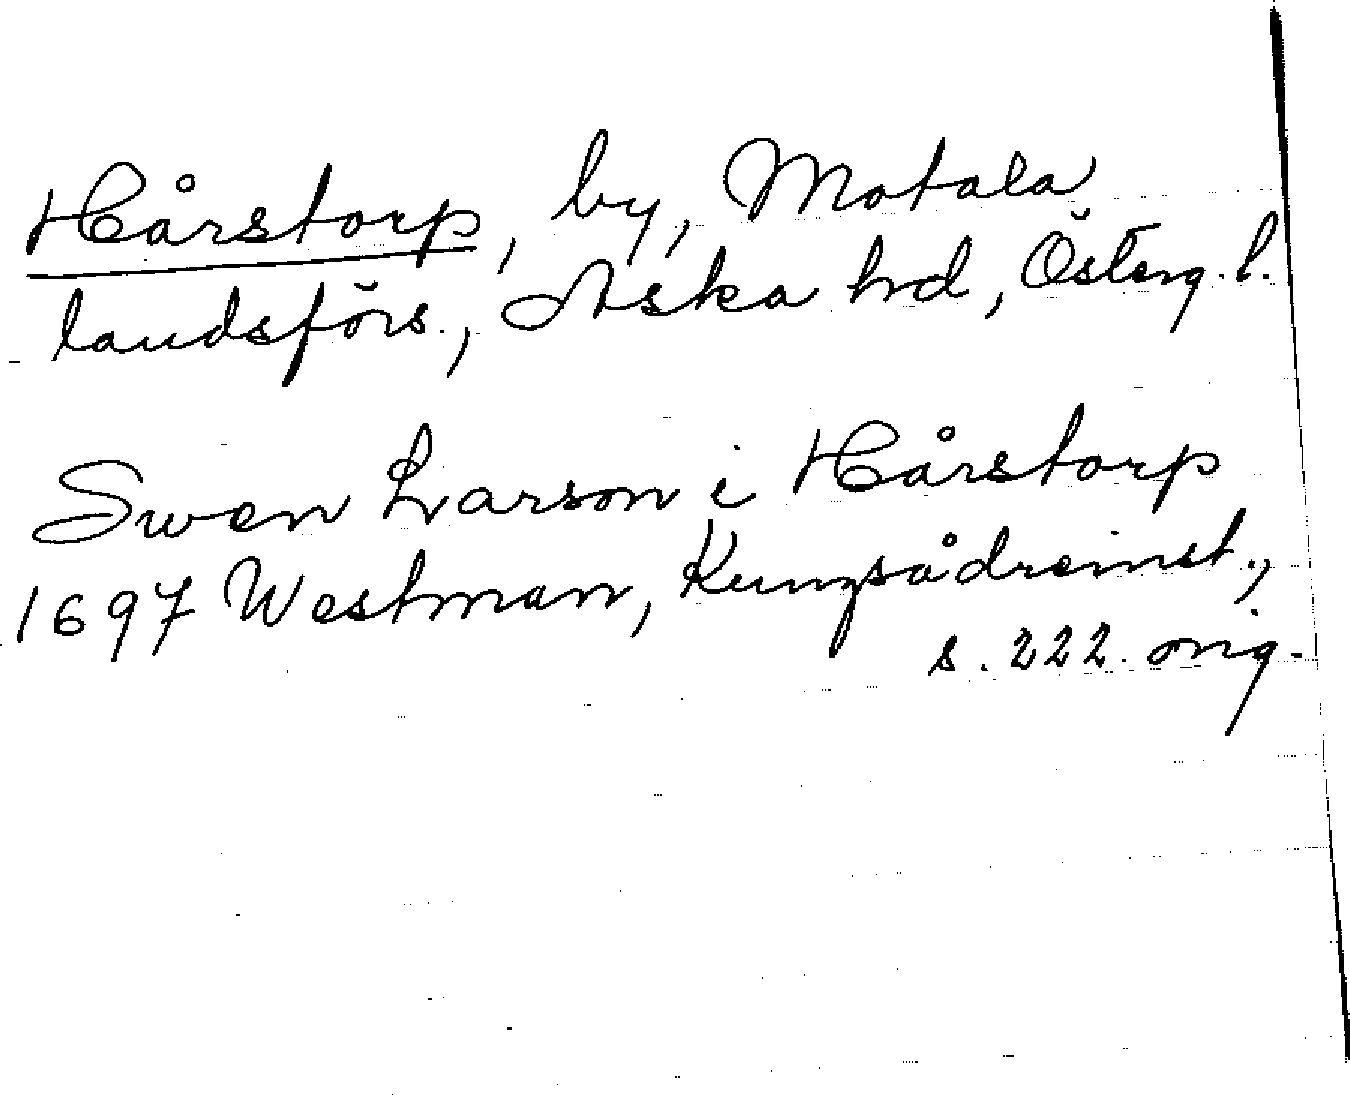 Hårstorp, by, Motala
landsförs., Aska hd, Österg. l.
Swen Larson i Hårstorp
1697 Westman, Kungsådreinst.,
s. 222. orig.